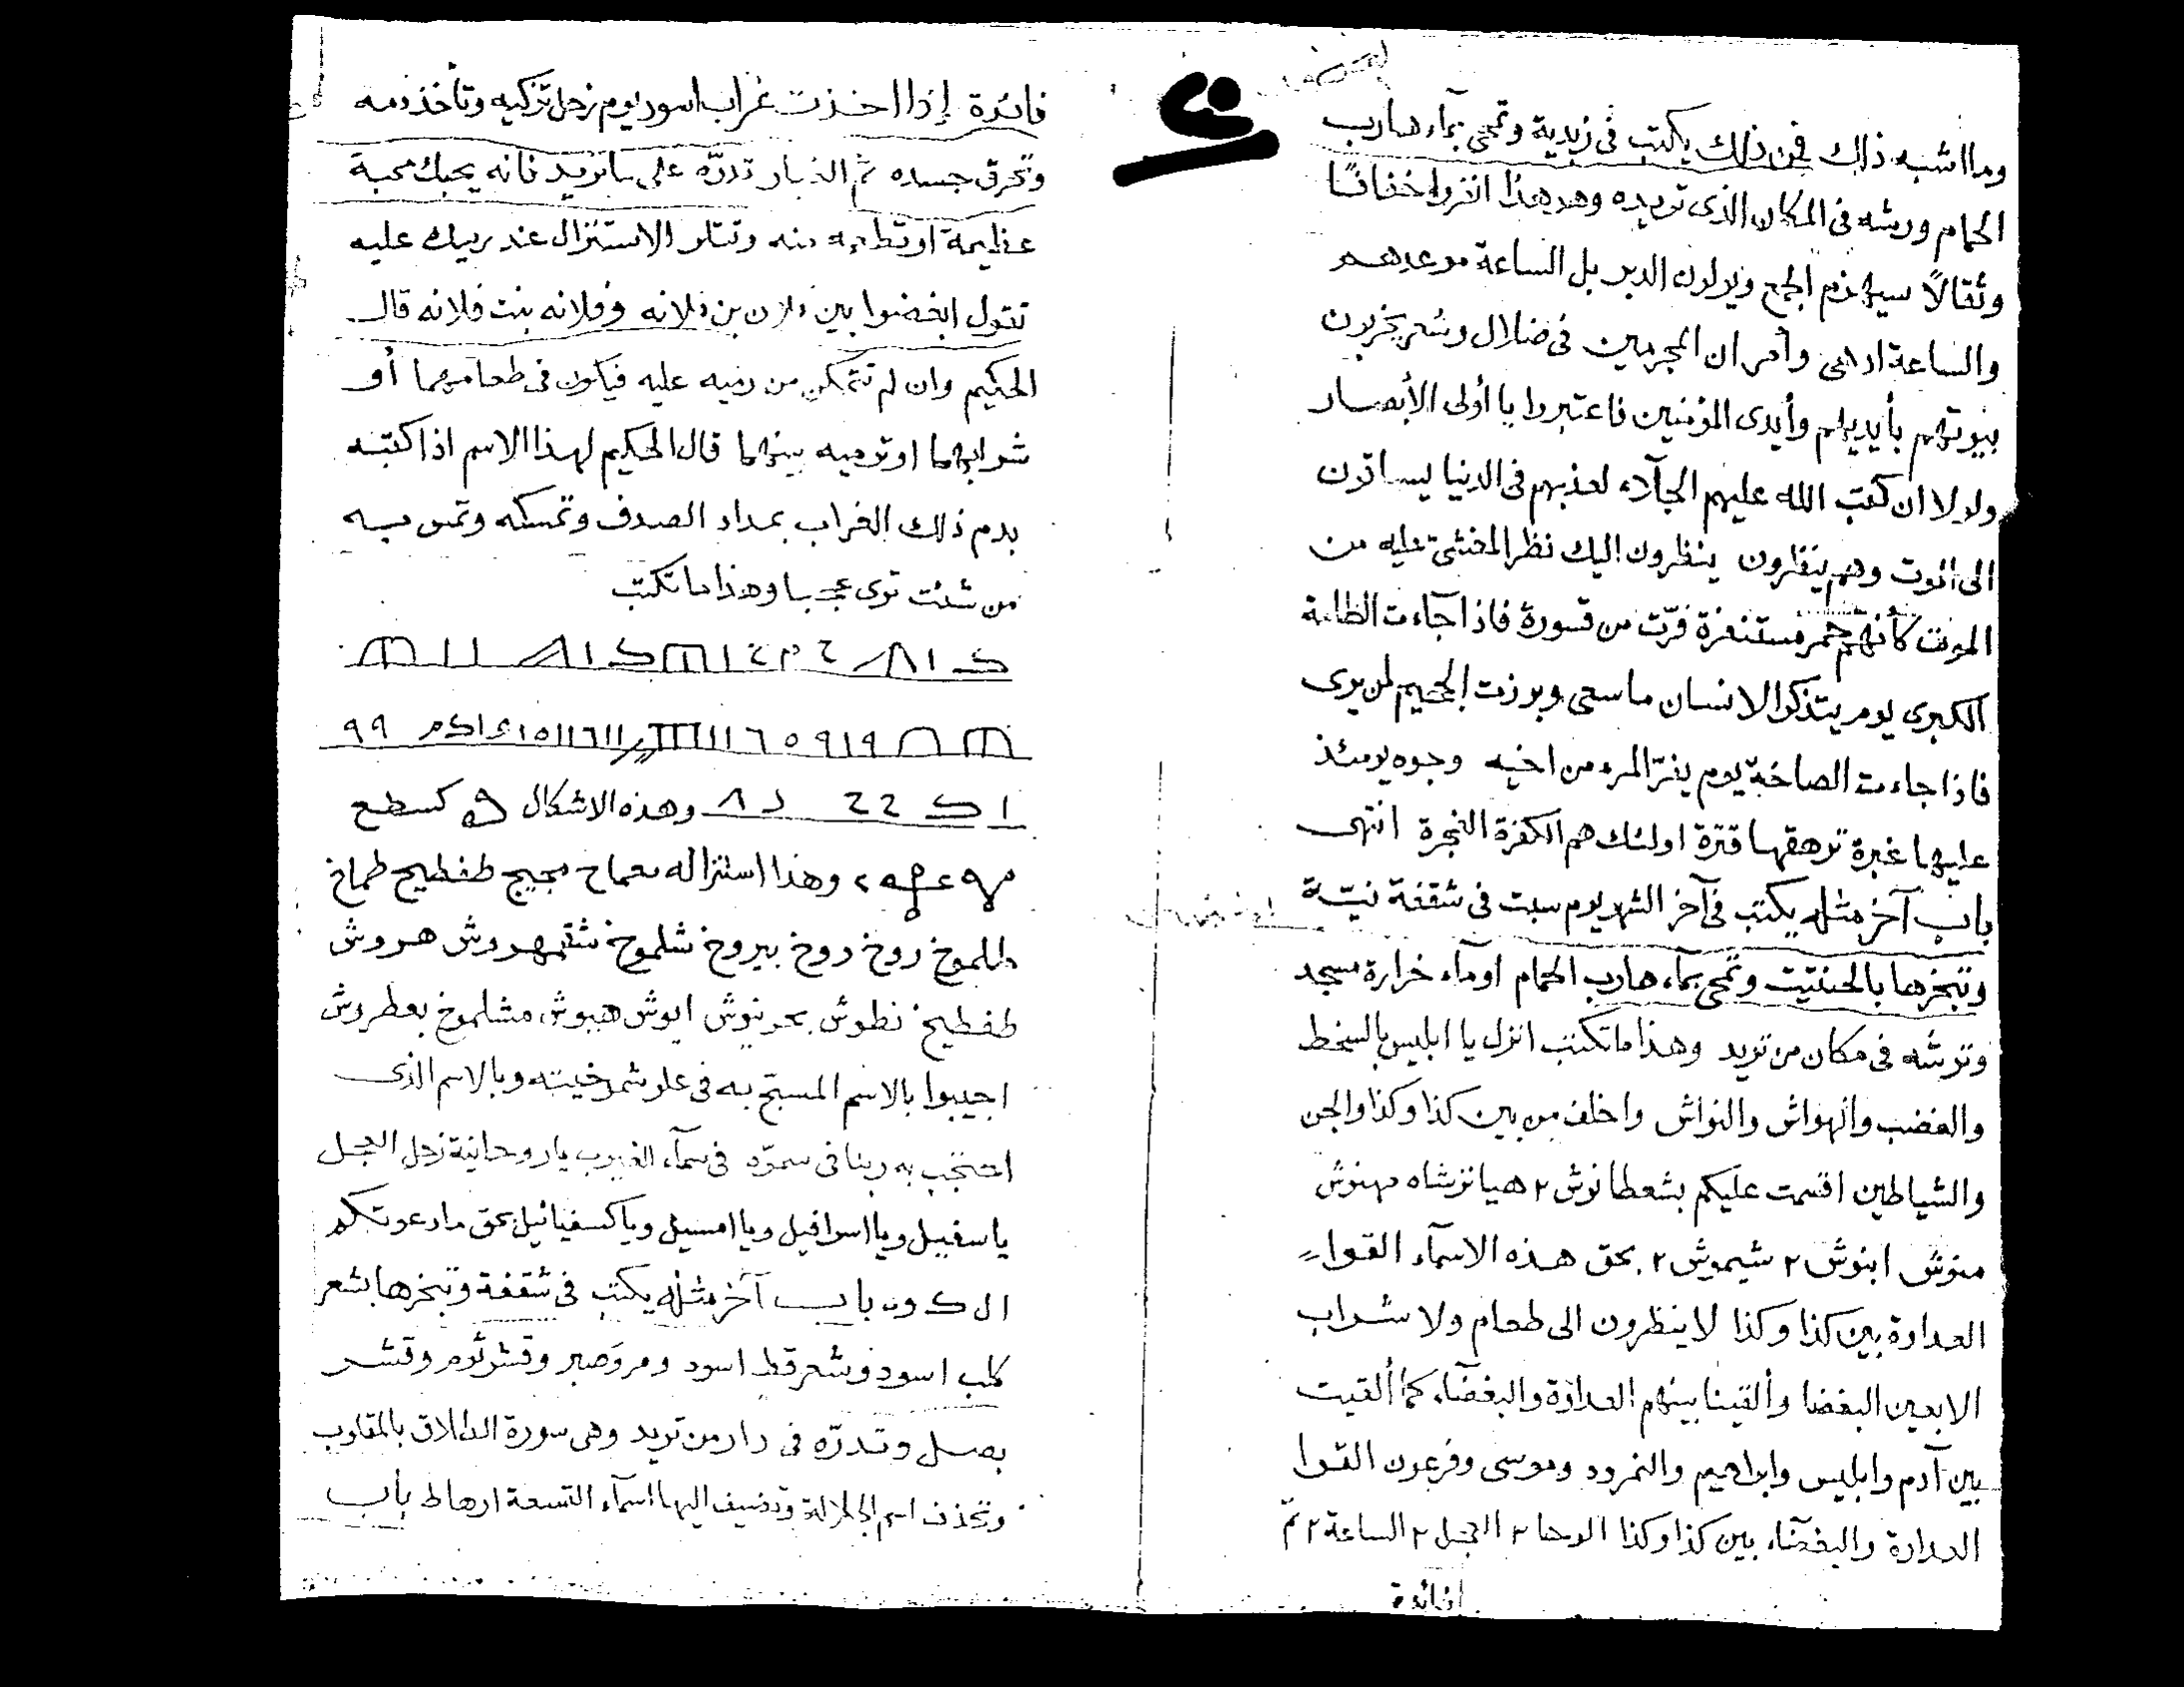 وما اشبه ذلك فمن ذلك يكتب في زبدية وتمحى بمآء هارب
الحمام ورشه في المكان الذى تريده وهو هذا انفروا خفافًا
وثقالًا سيهزم الجمع ويولون الدبر بل الساعة موعدهم
والساعة ادهى وأمر ان المجرمين فى ضلال وسعر يخربون
بيوتهم بأيديهم وأيدى المؤمنين فاعتبروا يا أولى الأبصار
ولولا ان كتب الله عليهم الجلآء لعذبهم فى الدنيا يساقون
الى الموت وهم ينظرون ينظرون اليك نظر المغشى عليه من
الموت كأنهم حمر مستنفرة فرّت من قسورة فاذا جآءت الطامة
الكبرى يوم يتذكر الانسان ما سعى وبرزت الجحيم لمن يرى
فاذا جاءت الصاخة يوم يفرّ المرء من اخيه وجوه يومئذ
عليها غبرة ترهقها قترة اولئك هم الكفرة الفجرة انتهى
باب آخر مثله يكتب في آخر الشهر يوم سبت فى شقفة نيّة
وتبخرها بالحنتيت وتمحى بمآء هارب الحمام اومآء خرارة مسجد
وترشه فى مكان من تريد وهذا ما تكتب انزل يا ابليس بالسخط
والغضب والهواش والنواش واخلف من بين كذا وكذا والجن
والشياطين اقسمت عليكم بشعطانوش ٢ هيا نزشاه مهنوش
منوش ابنوش ٢ شيموش ٢ بحق هذه الاسمآء القوا
العداوة بين كذا وكذا لا ينظرون الى طعام ولا شراب
الا بعين البغضا وألقينا بينهم العداوة والبغضآء كما ألقيت
بين آدم وابليس وابراهيم والنمرود وموسى وفرعون القوا
العداوة والبغضآء بين كذا وكذا الوحا ٢ العجل ٢ الساعة ٢ تمّ
فائدة
فائدة إذا اخذت غراب اسود يوم زحل تزكيه وتأخذ دمه
وتحرق جسده ثم الغبار تدرّه على ما تريد فانه يحبك محبة
عظيمة او تطعمه منه وتتلو الاستنزال عند رميك عليه
تقول ابغضوا بين فلان بن فلانه وفلانه بنت فلانه قال
الحكيم وان لم تتمكن من رميه عليه فيكون فى طعامهما أو
شرابهما او ترميه بينهما قال الحكيم لهذا الاسم اذا كتبته
بدم ذلك الغراب بمداد الصدف وتمسكه وتمس به
من شئت ترى عجبا وهذا ما تكتب
وهذه الاشكال كسطع
وهذا استنزاله معماح مجيج طفطيح طماخ
طلموخ روخ دوخ بيروخ شلموخ شقمهروش هروش
طفطيخ نطوش بحرنوش ايوش هيوش مشلموخ بعطروش
اجيبوا بالاسم المسبح به فى علو شموخيته وبالاسم الذى
احتجب به ربنا فى سموّه فى سمآء الغيوب يا روحانية زحل العجل
يا سفييل ويا اسرافيل ويا امسيل ويا كسفيائيل بحق ما دعوتكم
باب آخر مثله يكتب فى شقفة وتبخرها بشعر
كلب اسود وشعر قط اسود ومر وصبر وقشر ثوم وقشر
بصل وتدرّه فى دار من تريد وهى سورة الطلاق بالمقلوب
وتحذف اسم الجلالة وتضيف اليها اسمآء التسعة ارهاط باب